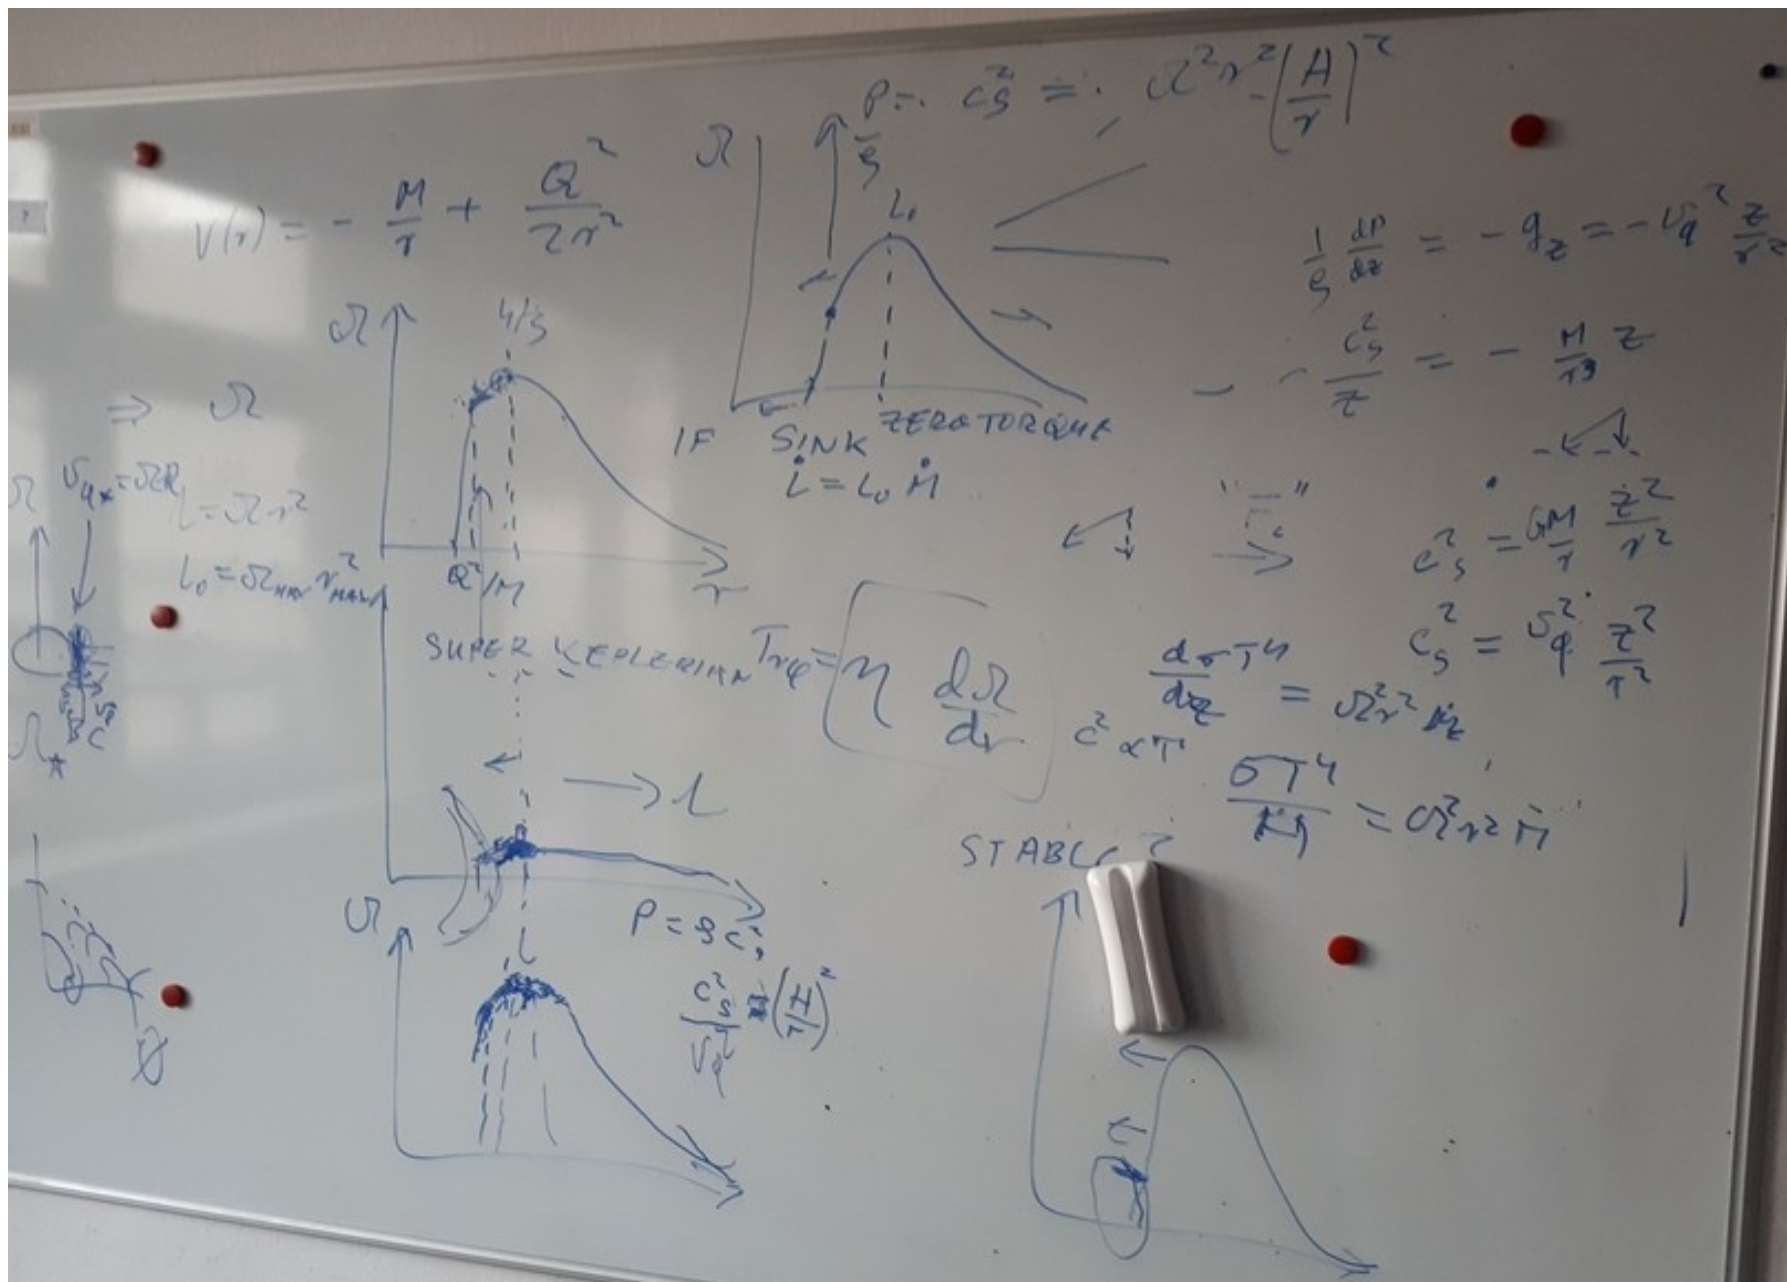 V(r) = - M/r + Q²/2r²
P/ρ = · c_s² = · Ω²r²(H/r)²
Ω
L₀
1/ρ dP/dz = - g_z = - v_φ² z/r²
- c_s²/z = - M/r³ z
Ω
4/3
⇒ Ω
IF SINK ZERO TORQUE
L̇ = L₀ Ṁ
Ω
v_φ* = ΩR
L = Ωr²
L₀ = Ω_MAX r²_MAX
Q²/M
r
c_s² = GM/r z²/r²
c_s² = v_φ² z²/r²
SUPER KEPLERIAN
T_rφ = η dΩ/dr
c² ∝ T
dσT⁴/dz = Ω²r² Ṁ
σT⁴/H = Ω²r² Ṁ
Ω*
→ L
STABLE ?
Ω
P = ρ c_s²
L
c_s²/v_φ² = (H/r)²